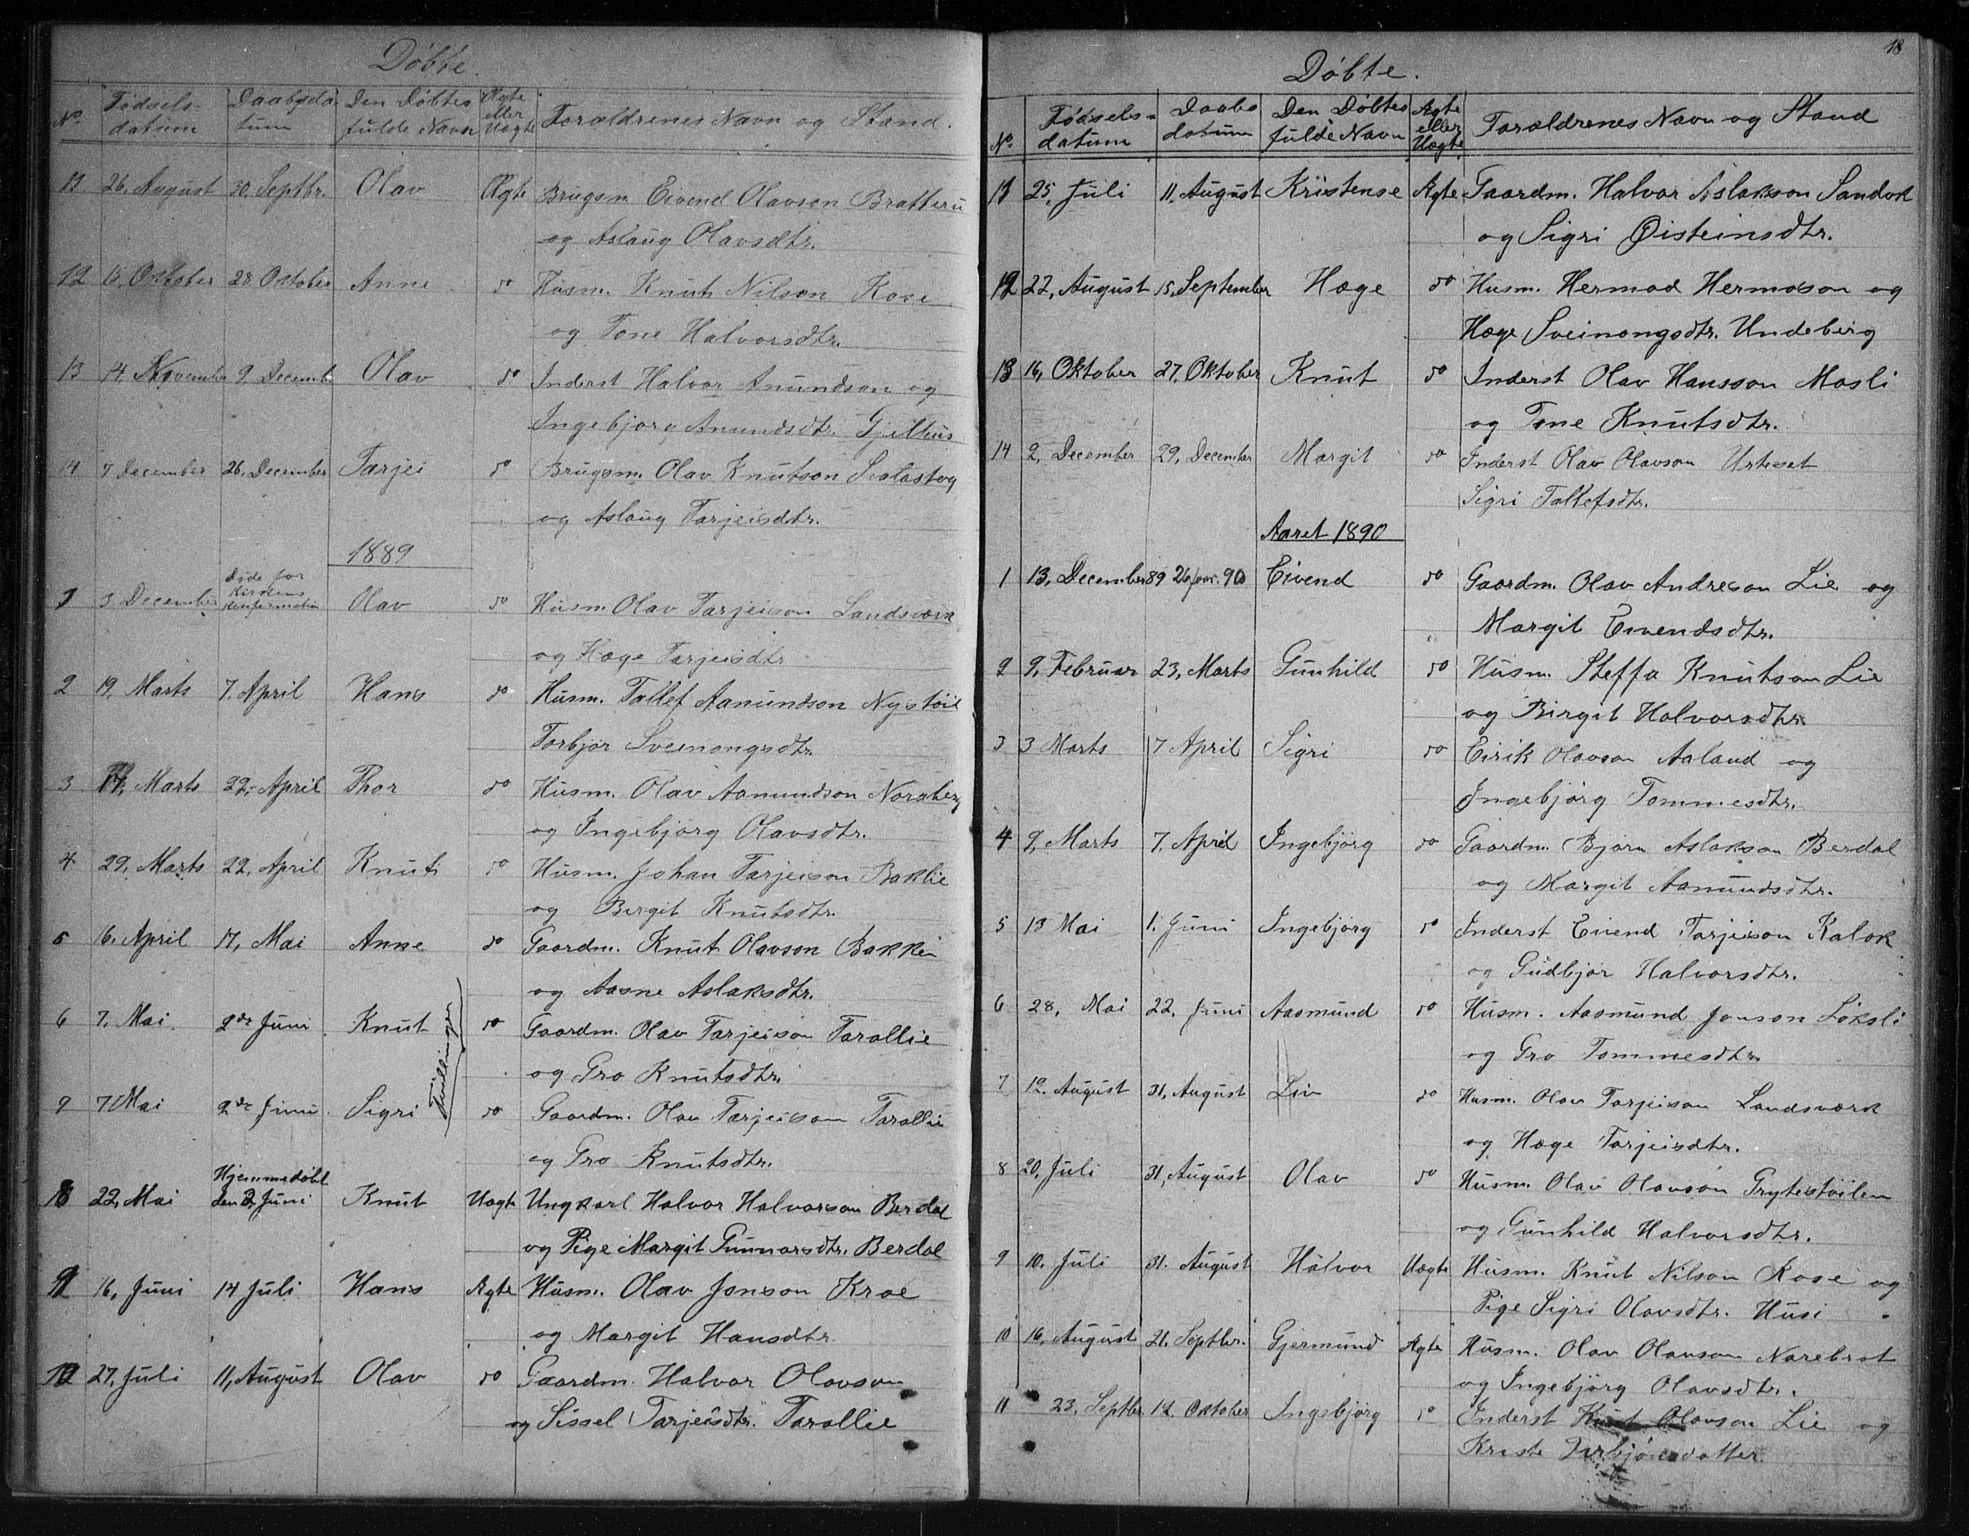 Døbte.
No. Fødselsdatum Daabsdatum Den Døbtes fulde Navn Ægte eller Uægte Forældrenes Navn og Stand.
11 26, August 30, Septbr. Olav Ægte Brugsm. Eivend Olavsen
og Aslaug Olavsdtr.
12 Oktober 28. Oktober Anne do Husm. Knut Nilson Rose
og Tone Halvorsdtr.
13 14, November 9. Decemb Olav do Inderst Halvor Anundson og
Ingebjørg Anundsdtr. Gjelhus
14 7 December 26, December Tarjei do Brugsm. Olav Knutson
og Aslaug Tarjeisdtr.
1889
1 3 December Døde før Kirkens Olav do Husm. Olav Tarjeison Landsværk
og Hæge Tarjeisdtr
2 19, Marts 7. April Hans do Husm. Tallef Aamundson Nystøil
Torbjør Sveinongsdtr.
3 17, Marts 22, April Thor do Husm. Olav Aamundson Noraberg
og Ingebjørg Olavsdtr.
4 29, Marts 22, April Knut do Husm. Johan Tarjeison Baklie
og Bergit Knutsdtr.
5 16. April 17, Mai Anne do Gaardm. Knut Olavson Bakken
og Aasne Aslaksdtr.
6 7, Mai 2den Juni Knut do Gaardm. Olav Tarjeison Tarallie
og Gro Knutsdtr.
Tvillinger
9 7 Mai 2de Juni Sigri do Gaardm. Olav Tarjeison Tarallie
og Gro Knutsdtr.
8 22, Mai Hjemmedøbt den 2, Juni Knut Uægte Ungkarl Halvor Halvorson Berdal
og Pige Margit Gunnarsdtr. Berdal
9 16, Juni 14 Juli Hans Ægte Husm. Olav Jonson Kroe
og Margit Hansdtr.
10 27, Juli 11, August Olav do Gaardm. Halvor Olavson
og Sissel Tarjeisdtr. Tarallie
18
Døbte.
No. Fødselsdatum Daabsdatum Den Døbtes fulde Navn Ægte eller Uægte Forældrenes Navn og Stand
11 25, Juli 11, August Kristense Ægte Gaardm. Halvor Aslakson Sandok
og Sigri Øisteinsdtr.
12 22, August 15, September Hæge do Husm. Hermod Hermodson og
Hæge Sveinongsdtr. Undeberg
13 16, Oktober 27, Oktober Knut do Inderst Olav Hansson Mosli
og Tone Knutsdtr.
14 2, December 29, December Margit do Inderst Olav Olavson
Sigri Tallefsdtr.
Aaret 1890
1 13, December 89 26 jan. 90 Eivend do Gaardm. Olav Andreson Lie og
Margit Eivendsdtr.
2 9, Februar 23, Marts Gunhild do Husm. Steffa Knutson Lie
og Birgit Halvorsdtr.
3 3 Marts 7 April Sigri do Eirik Olavson Aaland og
Ingebjørg Tommesdtr.
4 9, Marts 7. April Ingebjørg do Gaardm. Bjørn Aslakson Berdal
og Margit Aamundsdtr.
5 13 Mai 1. Juni Ingebjørg do Inderst Eivend Tarjeison Kalok
og Gudbjør Halvorsdtr.
6 28, Mai 22, Juni Aasmund do Husm. Aasmund Jonson Løksli
og Gro Tommesdtr.
7 12. August 31, August Liv do Husm. Olav Tarjeison Landsværk
og Hæge Tarjeisdtr.
8 20, Juli 31, August Olav do Husm. Olav Olavson Grytestøilen
og Gunhild Halvorsdtr.
9 10. Juli 31. August Halvor Uægte Husm. Knut Nilson Rose og
Pige Sigri Olavsdtr. Husi
10 16, August 21. Septbr. Gjermund Ægte Husm. Olav Olavson
og Ingebjørg Olavsdtr.
11 23, Septbr. 12. Oktober Ingebjørg do Inderst Knut Olavson Lie og